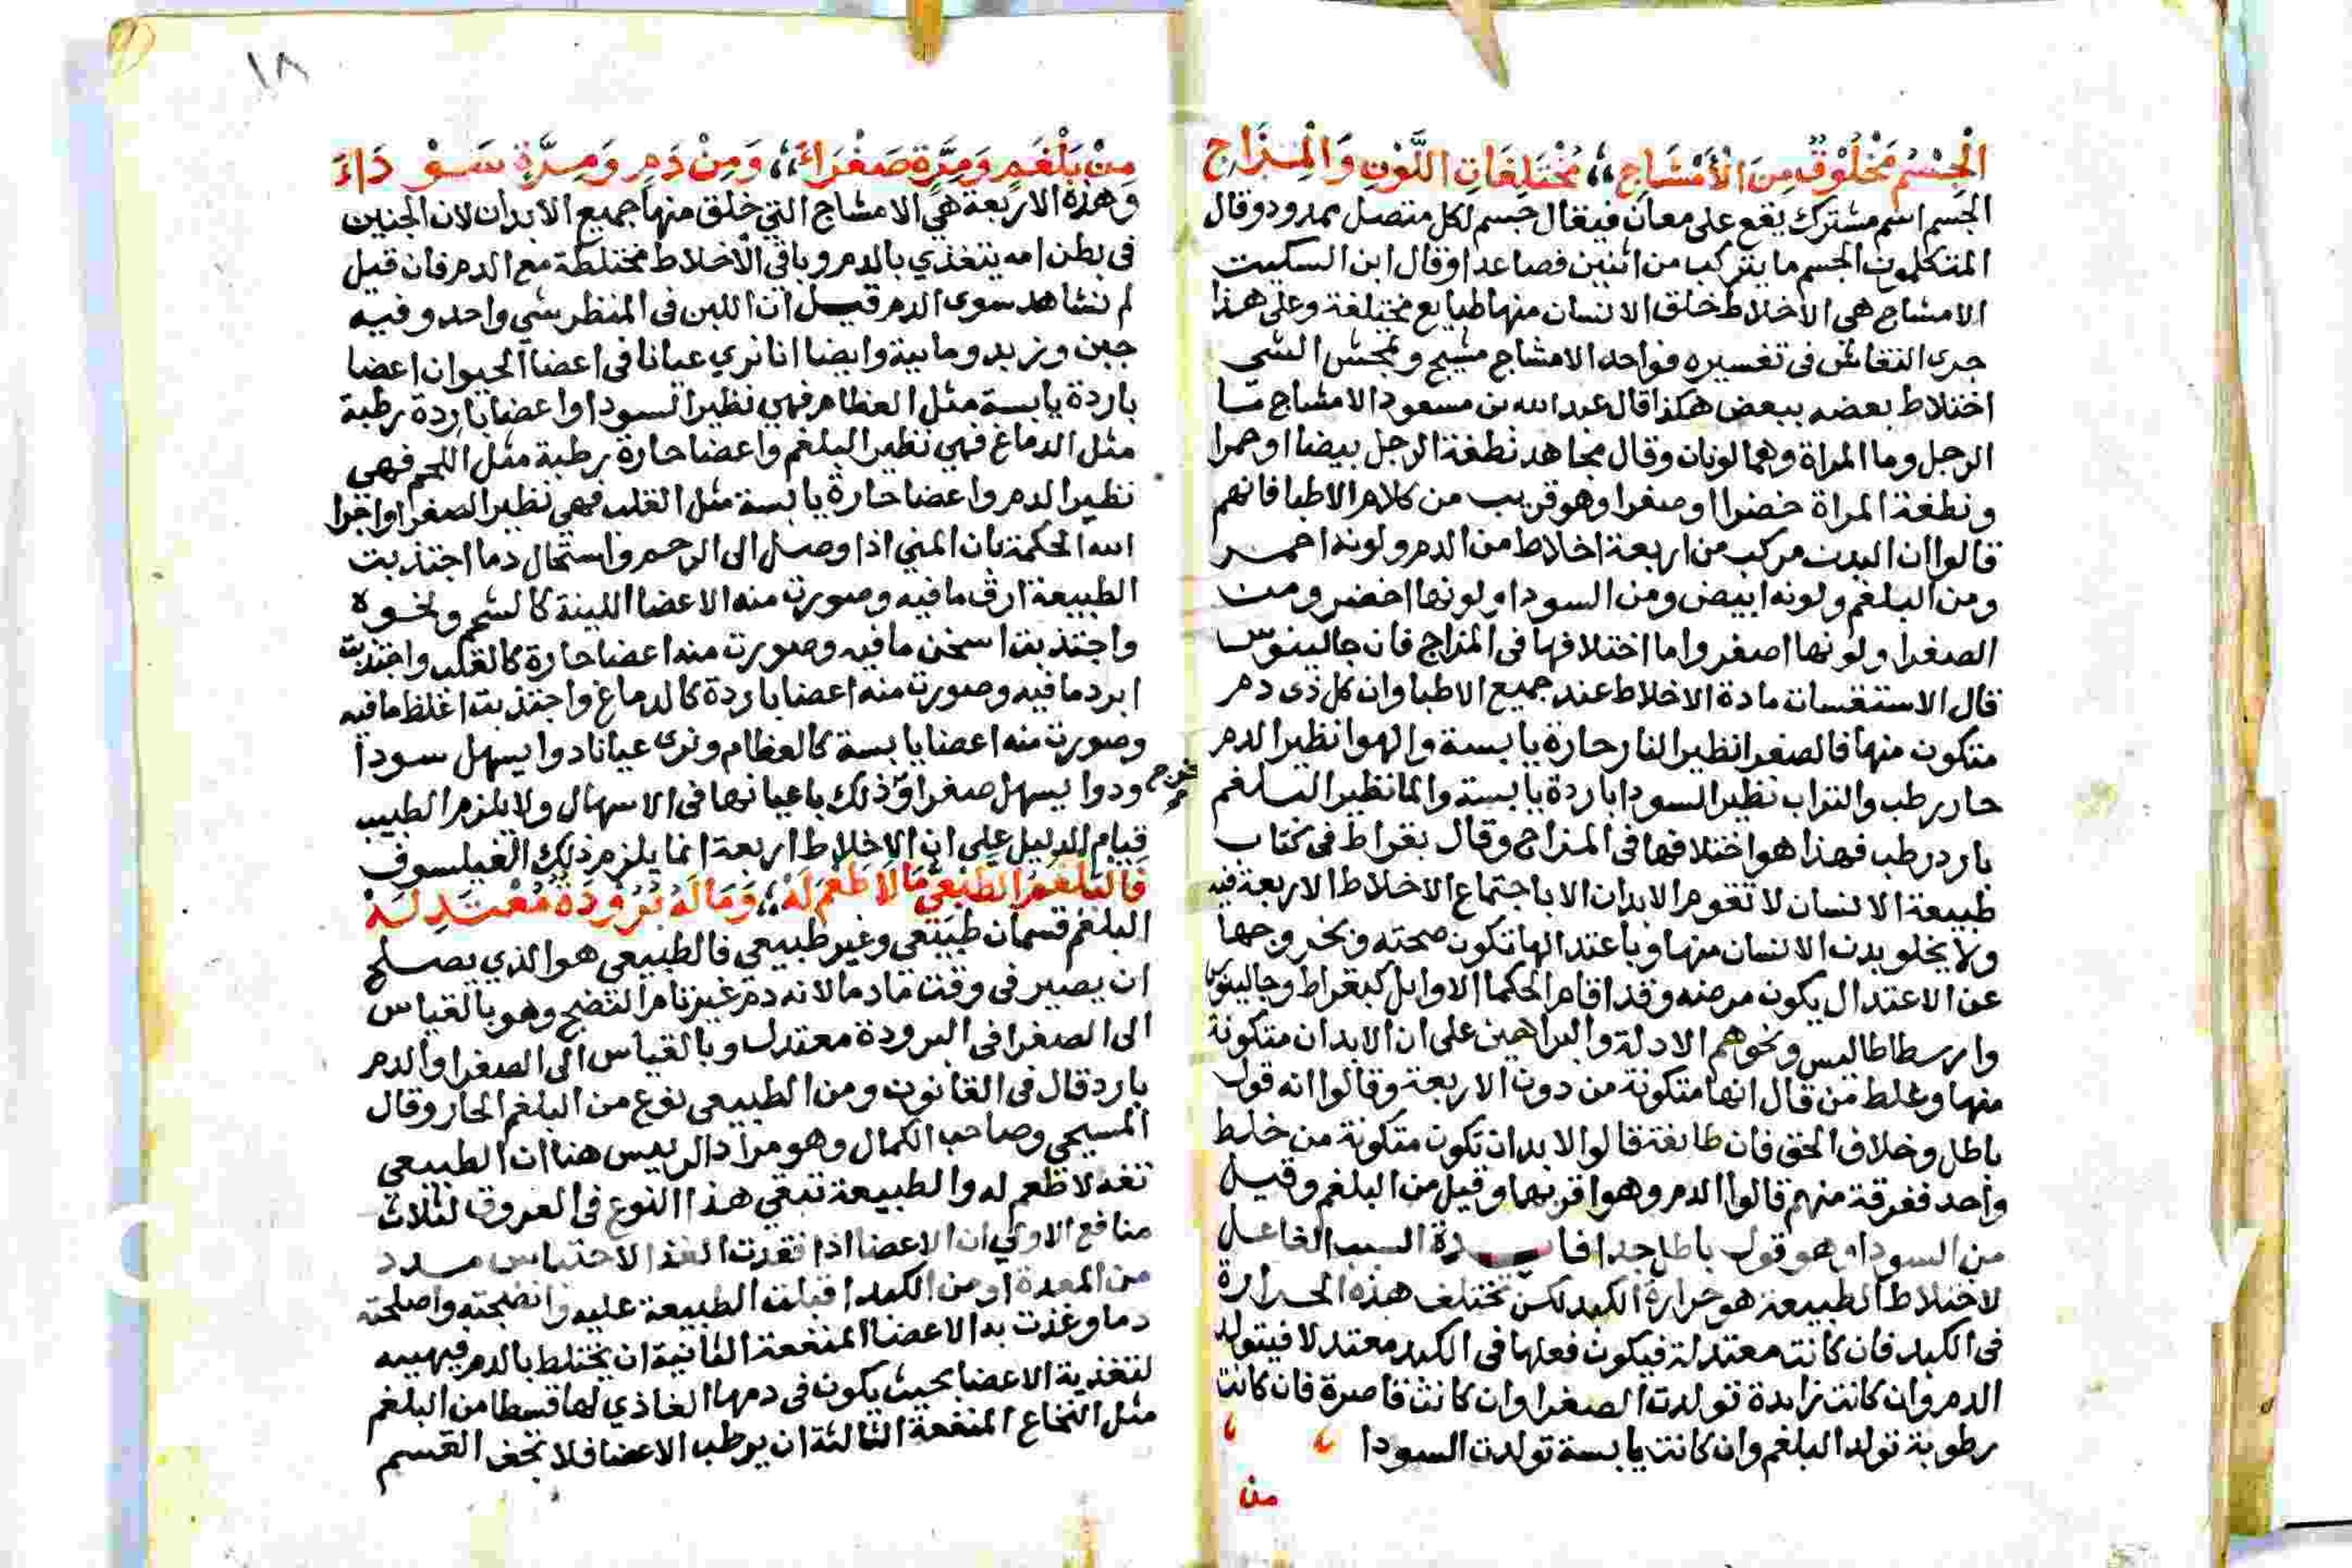 الْجِسْمُ مَخْلُوْقٌ مِنَ الْأَمْشَاجِ ،، مُخْتَلِفَاتِ اللَّوْنِ وَالْمِزَاجِ
الجسم اسم مشترك يقع على معان فيقال جسم لكل متصل ممدود وقال
المتكلمون الجسم ما يتركب من اثنين فصاعدا وقال ابن السكيت
الامشاج هي الاخلاط خلق الانسان منها طبايع مختلفة وعلى هذا
جرى النقاش في تفسيره فواحد الامشاج مشيج و الشي
اختلاط بعضه ببعض هكذا قال عبد الله بن مسعود الامشاج ما
الرجل وما المراة وهما لونان وقال مجاهد نطفة الرجل بيضا او حمرا
ونطفة المراة خضرا او صفرا وهو قريب من كلام الاطبا فانهم
قالوا ان البدن مركب من اربعة اخلاط من الدم ولونه احمر
ومن البلغم ولونه ابيض ومن السودا ولونها اخضر ومن
الصفرا ولونها اصفر واما اختلافها في المزاج فان جالينوس
قال الاستقسات مادة الاخلاط عند جميع الاطبا وان كل ذي دم
متكون منها فالصفرا نظير النار حارة يابسة والهوا نظير الدم
حار رطب والتراب نظير السودا باردة يابسة والما نظير البلغم
بارد رطب فهذا هو اختلافها في المزاج وقال بقراط في كتاب
طبيعة الانسان لا تقوم الابدان الا باجتماع الاخلاط الاربعة فيه
ولا يخلو بدن الانسان منها وباعتدالها تكون صحته وبخروجها
عن الاعتدال يكون مرضه وقد اقام الحكما الاوايل كبقراط وجالينوس
وارسطاطاليس ونحوهم الادلة والبراهين على ان الابدان متكونة
منها وغلط من قال انها متكونة من دون الاربعة وقالوا انه قول
باطل وخلاف الحق فان طايفة قالوا الابدان تكون متكونة من خلط
واحد ففرقة منهم قالوا الدم وهو اقربها وقيل من البلغم وقيل
من السودا وهو قول باطل جدا السبب الفاعل
لاختلاط الطبيعة هو حرارة الكبد لكن تختلف هذه الحرارة
في الكبد فان كانت معتدلة فيكون فعلها في الكبد معتدلا فيتولد
الدم وان كانت زايدة تولدت الصفرا وان كانت قاصرة فان كانت
رطوبة تولد البلغم وان كانت يابسة تولدت السودا
من
١٨
مِنْ بَلْغَمٍ وَمِرَّةٍ صَفْرَاءَ ،، وَمِنْ دَمٍ وَمِرَّةٍ سَوْدَاءَ
وهذه الاربعة هي الامشاج التي خلق منها جميع الابدان لان الجنين
في بطن امه يتغذي بالدم وباقي الاخلاط مختلطة مع الدم فان قيل
لم نشاهد سوى الدم قيل ان اللبن في المنظر شي واحد وفيه
جبن وزبد ومايية وايضا انا نري عيانا في اعضا الحيوان اعضا
باردة يابسة مثل العظام فهي نظير السودا واعضا باردة رطبة
مثل الدماغ فهي نظير البلغم واعضا حارة رطبة مثل اللحم فهي
نظير الدم واعضا حارة يابسة مثل القلب فهي نظير الصفرا واجرا
الله الحكمة بان المني اذا وصل الى الرحم واستحال دما اجتذبت
الطبيعة ارق ما فيه وصورت منه الاعضا اللينة كالشحم ونحوه
واجتذبت اسخن ما فيه وصورت منه اعضا حارة كالقلب واجتذبت
ابرد ما فيه وصورت منه اعضا باردة كالدماغ واجتذبت اغلظ ما فيه
وصورت منه اعضا يابسة كالعظام ونرى عيانا دوا يسهل سودا
ودوا يسهل صفرا وذلك باعيانها في الاسهال ولا يلزم الطبيب
قيام الدليل على ان الاخلاط اربعة انما يلزم ذلك الفيلسوف
فَالْبَلْغَمُ الطَّبْعِيُّ مَا لَا طَعْمَ لَهْ ،، وَمَا لَهُ بُرُوْدَةٌ مُعْتَدِلَهْ
البلغم قسمان طبيعي وغير طبيعي فالطبيعي هو الذي يصلح
ان يصير في وقت ما دما لانه دم غير تام النضج وهو بالقياس
الى الصفرا في البرودة معتدل وبالقياس الى الصفرا والدم
بارد قال في القانون ومن الطبيعي نوع من البلغم الحار وقال
المسيحي وصاحب الكمال وهو مراد الرييس هنا ان الطبيعي
تفه لا طعم له والطبيعة تبقي هذا النوع في العروق لثلاث
منافع الاولي ان الاعضا اذا فقدت الغذا لاحتباس مدد
من المعدة او من الكبد اقبلت الطبيعة عليه وانضجته واصلحته
دما وغذت به الاعضا المنفعة الثانية ان يختلط بالدم فيهييه
لتغذية الاعضا بحيث يكون في دمها الغاذي لها قسطا من البلغم
مثل النخاع المنفعة الثالثة ان يرطب الاعضا فلا تجف القسم